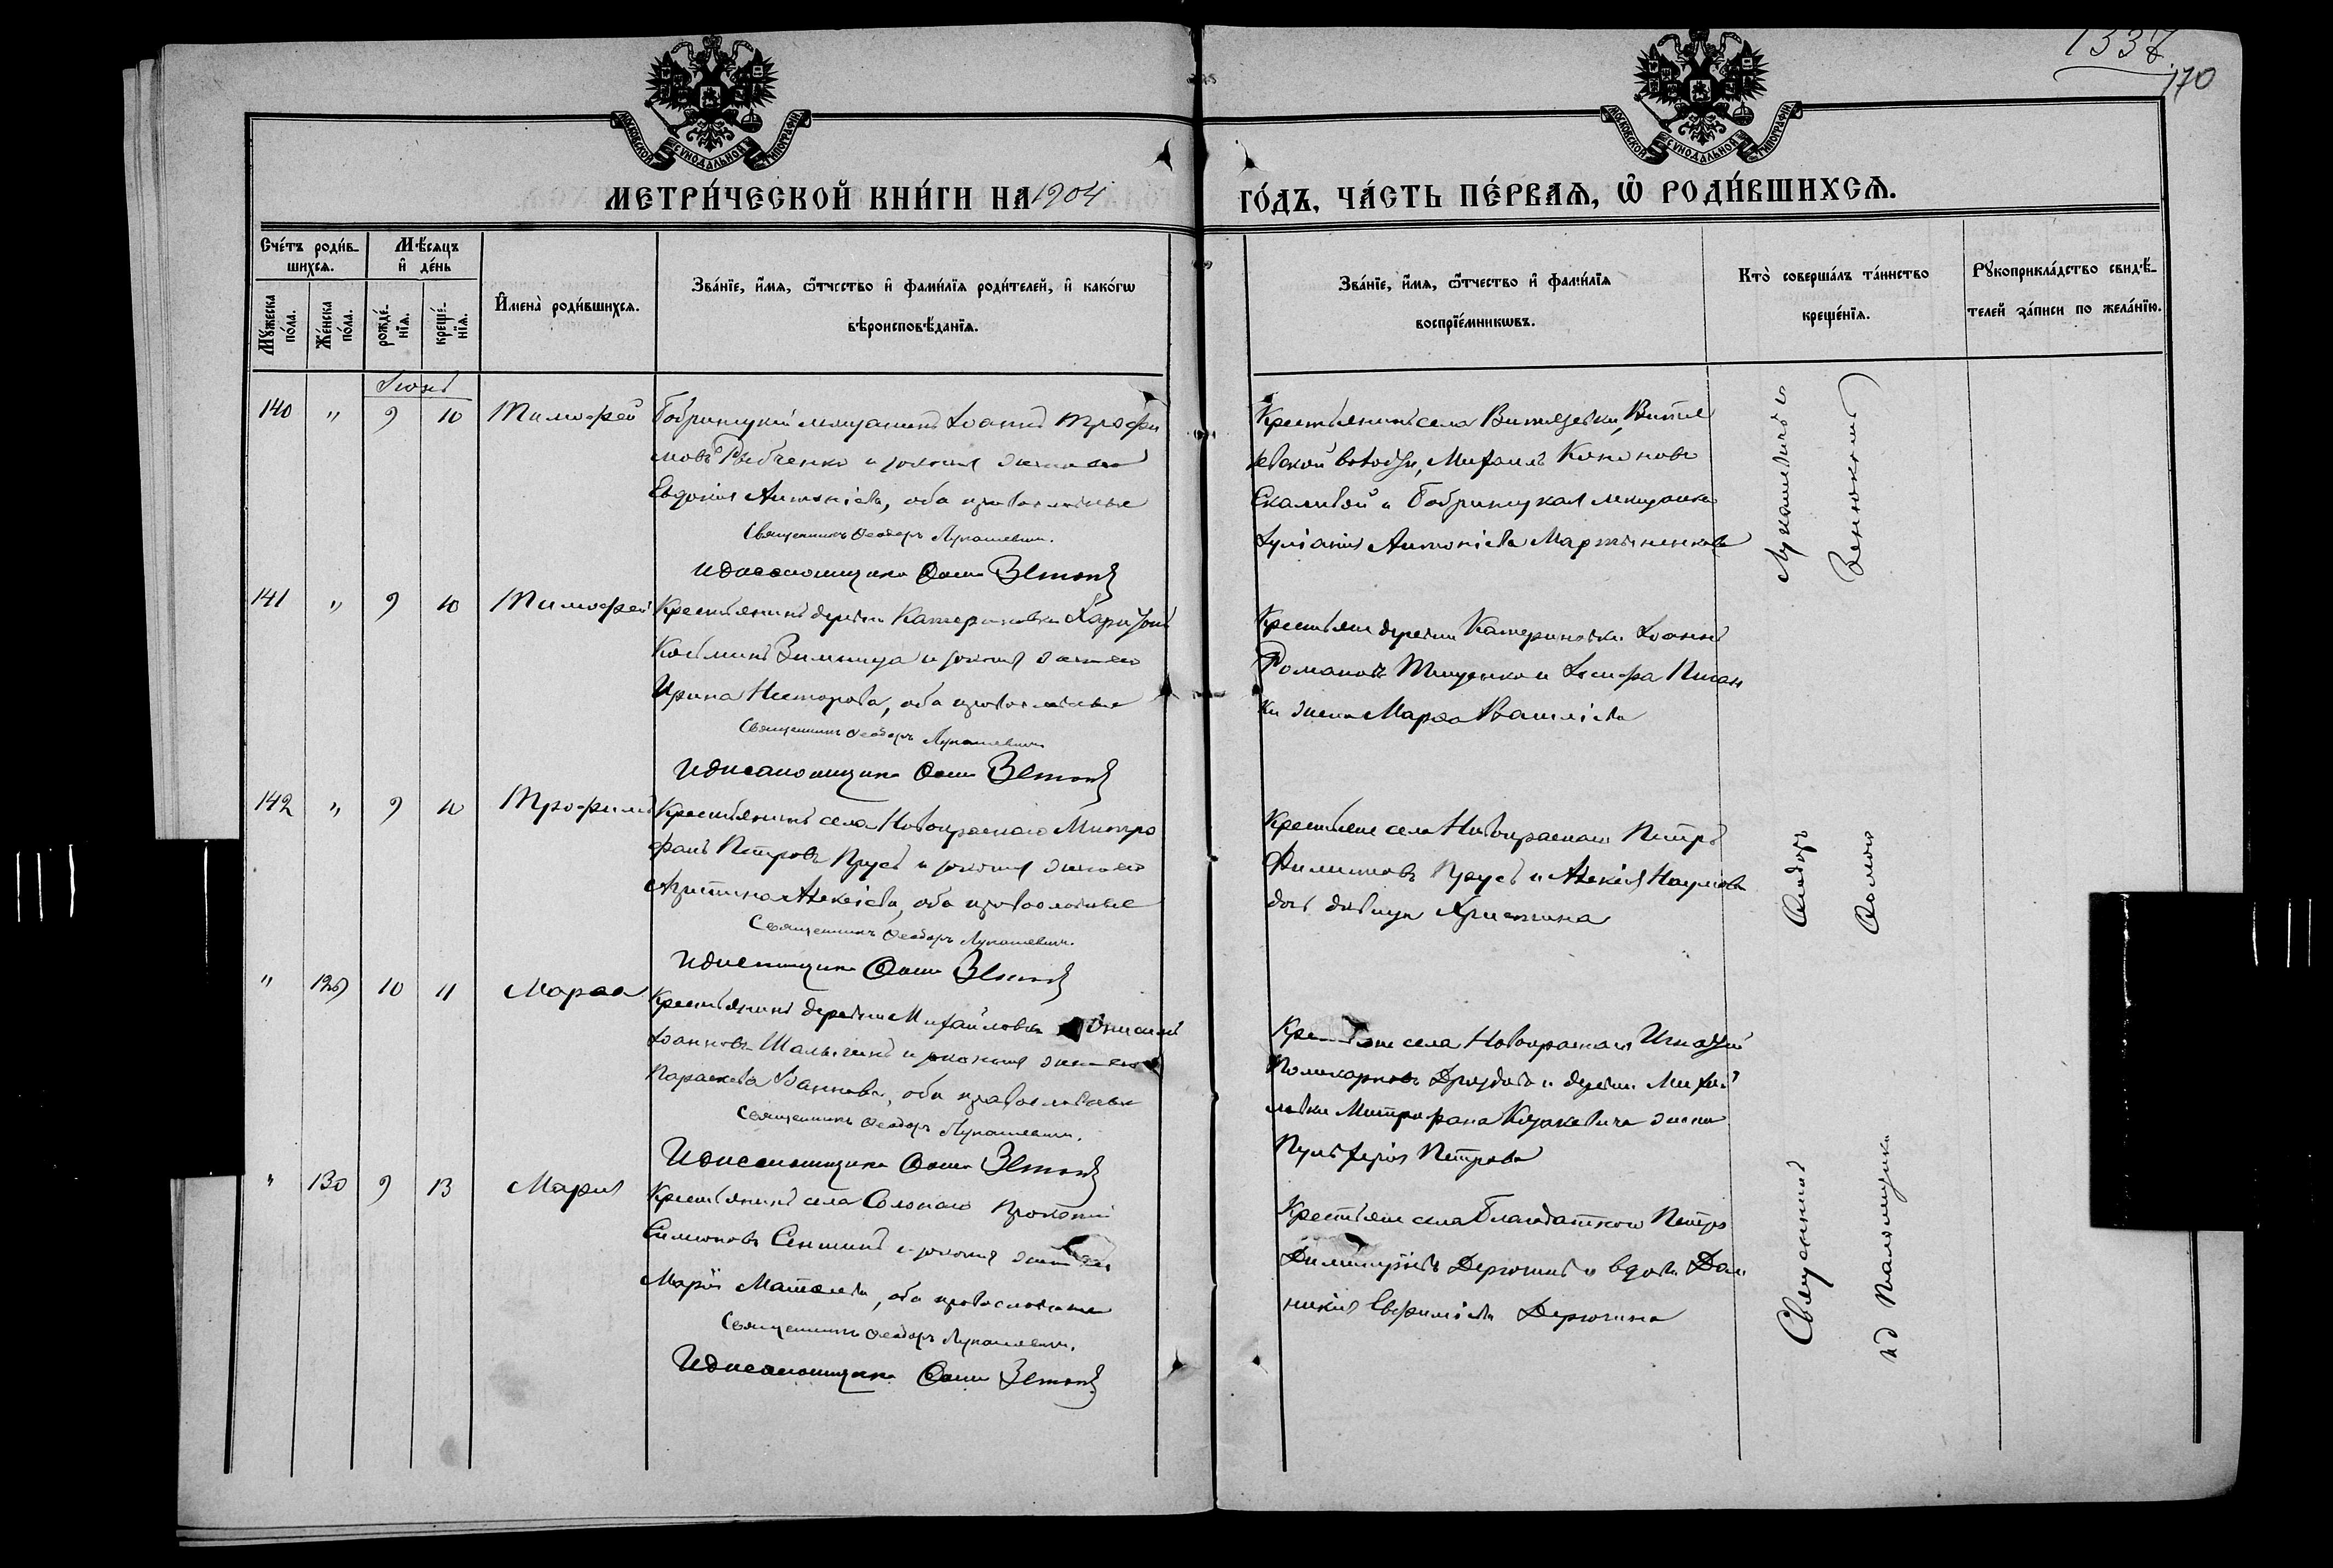 1337
170
МОСКОВСКОЙ СУНОДАЛЬНОЙ ТИПОГРАФІИ
МОСКОВСКОЙ СУНОДАЛЬНОЙ ТИПОГРАФІИ
МЕТРИ́ЧЕСКОЙ КНИ́ГИ НА 1904 ГО́ДЪ, ЧА́СТЬ ПЕ́РВАѦ, Ѽ РОДИ́ВШИХСѦ.
Сче́тъ роди́в-
шихсѧ.
Мꙋ́жеска по́ла.
Же́нска по́ла.
Мѣ́сяцъ
и҆ де́нь
рожде́-
нїѧ.
креще́-
нїѧ.
И҆мена̀ роди́вшихсѧ.
Зва́нїе, и҆́мѧ, ѻ҆́тчество и҆ фами́лїѧ роди́телей, и҆ како́гѡ
вѣроисповѣ́данїѧ.
Зва́нїе, и҆́мѧ, ѻ҆́тчество и҆ фами́лїѧ
воспрїе́мникѡвъ.
Кто̀ соверша́лъ та́инство
креще́нїѧ.
Рꙋкоприкла́дство свидѣ́-
телей за́писи по жела́нїю.
Іюнь
140 " 9 10 Тимофей
Бобринецкій мещанинъ Іоаннъ Трофи
мовъ Рябченко и законная жена его
Евдокія Антоніева, оба православные
Священникъ Ѳеодоръ Лукашевичъ.
И д псаломщика
Крестьянинъ села Витязевки, Витяз
евской волости, Михаилъ Кононовъ
Скаливой и Бобринецкая мещанка
Іуліанія Антоніева Мартыненкова
141 " 9 10 Тимофей
Крестьянинъ деревни Катериновки Харитонъ
Косьминъ Зимница и законная жена его
Ирина Несторова, оба православные
Священникъ Ѳеодоръ Лукашевичъ
И д псаломщика
Крестьяне деревни Катериновки Іоаннъ
Романовъ Тищенко и
жена Марѳа Василіева
142 " 9 10 Трофимъ
Крестьянинъ села Новокраснаго Митро
фанъ Петровъ Прусъ и законная жена его
Христина Алексіева, оба православные
Священникъ Ѳеодоръ Лукашевичъ.
И д псаломщика
Крестьяне села Новокраснаго Петръ
Филиповъ Прусъ и Алексія Наумова
дочь девица Христина
" 129 10 11 Марѳа
Крестьянинъ деревни Михайловки
Іоанновъ Шалыгинъ и законная жена его
Параскева Іоаннова, оба православные
Священникъ Ѳеодоръ Лукашевичъ.
И д псаломщика
Крестьяне села Новокраснаго Игнатій
Поликарповъ Дроздовъ и деревни Михай
ловки Митрофана Казакевича жена
Пульхерія Петрова
" 130 9 13 Марія
Крестьянинъ села Солонаго Прокопій
Симоновъ Сенинъ и законная жена его
Марія Матѳеева, оба православные
Священникъ Ѳеодоръ Лукашевичъ.
И д псаломщика
Крестьяне села Благодатного Петръ
Димитріевъ Дерюгинъ и вдова Дом
никія Евфиміева Дерюгина
Священникъ Ѳеодоръ Лукашевичъ и
и д псаломщика Ѳома